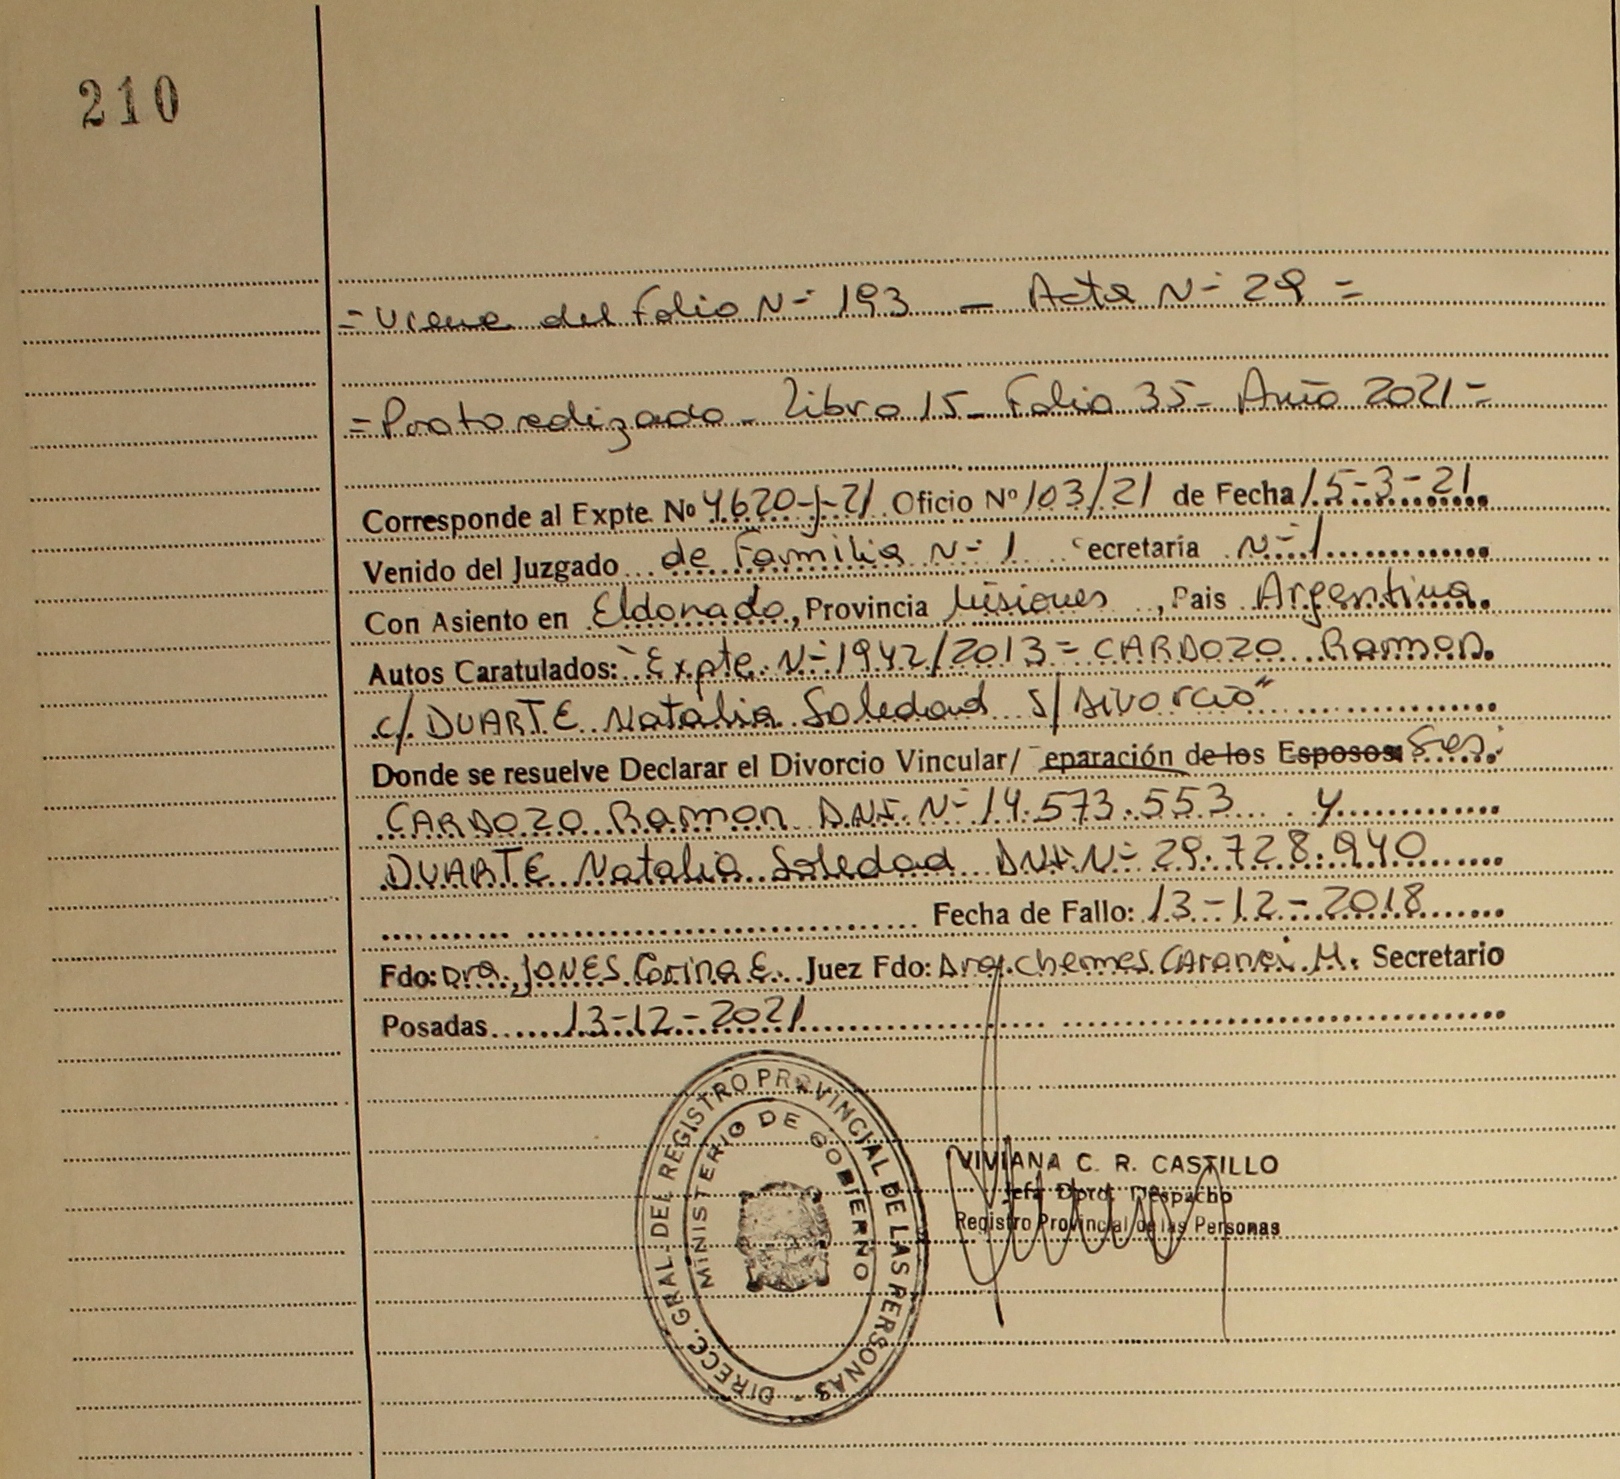 210
= Viene del Folio N= 193 - Acta N= 29 =
= Protocolizado - Libro 15 - Folio 35 - Año 2021 =
Corresponde al Expte. Nº 4620-J-21 Oficio Nº 103/21 de Fecha 15-3-21
Venido del Juzgado de Familia N= 1 ecretaría N= 1
Con Asiento en Eldorado, Provincia Misiones, Pais Argentina.
Autos Caratulados: "Expte. N= 1942/2013 = CARDOZO Ramon.
c/. DUARTE Natalia Soledad S/ Divorcio"
Donde se resuelve Declarar el Divorcio Vincular/ eparación de los Esposos: Sres:
CARDOZO Ramon D.N.I. N= 14.573.553 y
DUARTE Natalia Soledad D.N.I. N= 29.728.940
Fecha de Fallo: 13-12-2018
Fdo: Dra. JONES Corina E. Juez Fdo: Dra. Chemes M. Secretario
Posadas 13-12-2021
DIRECC. GRAL. DEL REGISTRO PROVINCIAL DE LAS PERSONAS -
MINISTERIO DE GOBIERNO
VIVIANA C. R. CASTILLO
Jefa Dpto. Despacho
Registro Provincial de las Personas